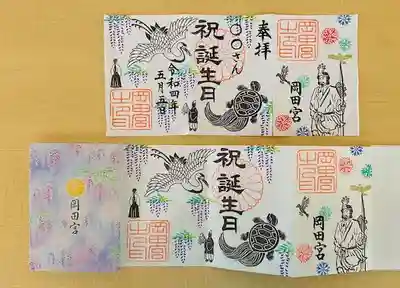 奉拝
岡田宮
〇〇さん
祝誕生日
令和四年
五月五日
岡田宮
祝誕生日
岡田宮